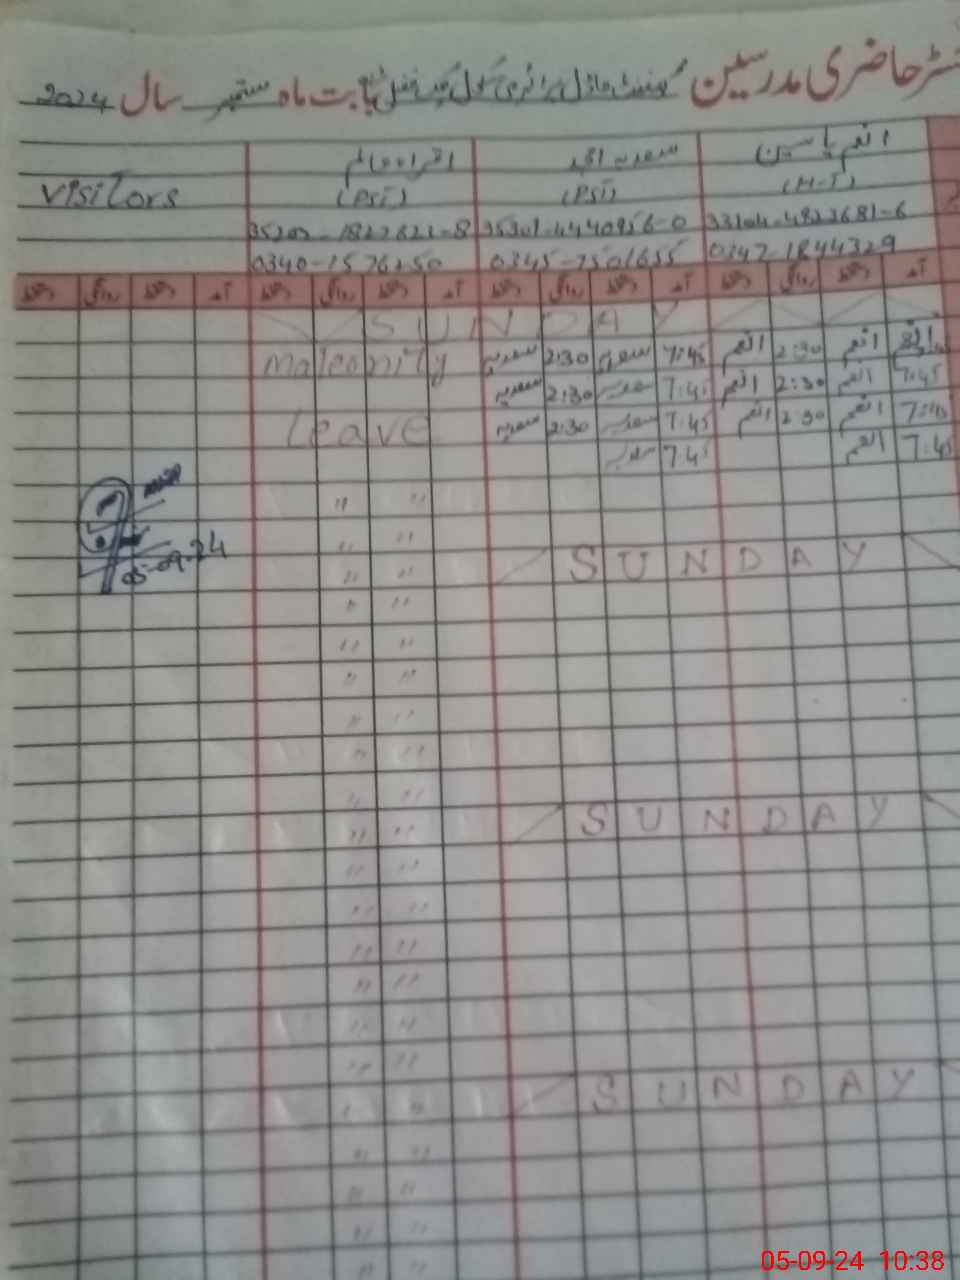 رجسٹر حاضری مدرسین گورنمنٹ ماڈل پرائمری سکول بابت ماہ ستمبر سال 2024
انعم یاسین سعدیہ اقراء
(PST) (PST) Visitors
0347-1844329 0345-7501655
آمد دستخط روانگی دستخط آمد دستخط روانگی دستخط آمد دستخط روانگی دستخط آمد دستخط روانگی دستخط
SUNDAY
انعم 2:30 انعم 7:45 سعدیہ 2:30 سعدیہ Maternity
7:45 انعم 2:30 انعم 7:45 سعدیہ 2:30 سعدیہ
7:45 انعم 2:30 انعم 7:45 سعدیہ 2:30 سعدیہ Leave
7:45 انعم 7:45 سعدیہ
" "
" "
SUNDAY " "
05-09-24
" "
" "
" "
" "
" "
" "
SUNDAY " "
" "
" "
" "
" "
" "
" "
SUNDAY " "
" "
" "
" "
" "
05-09-24 10:38